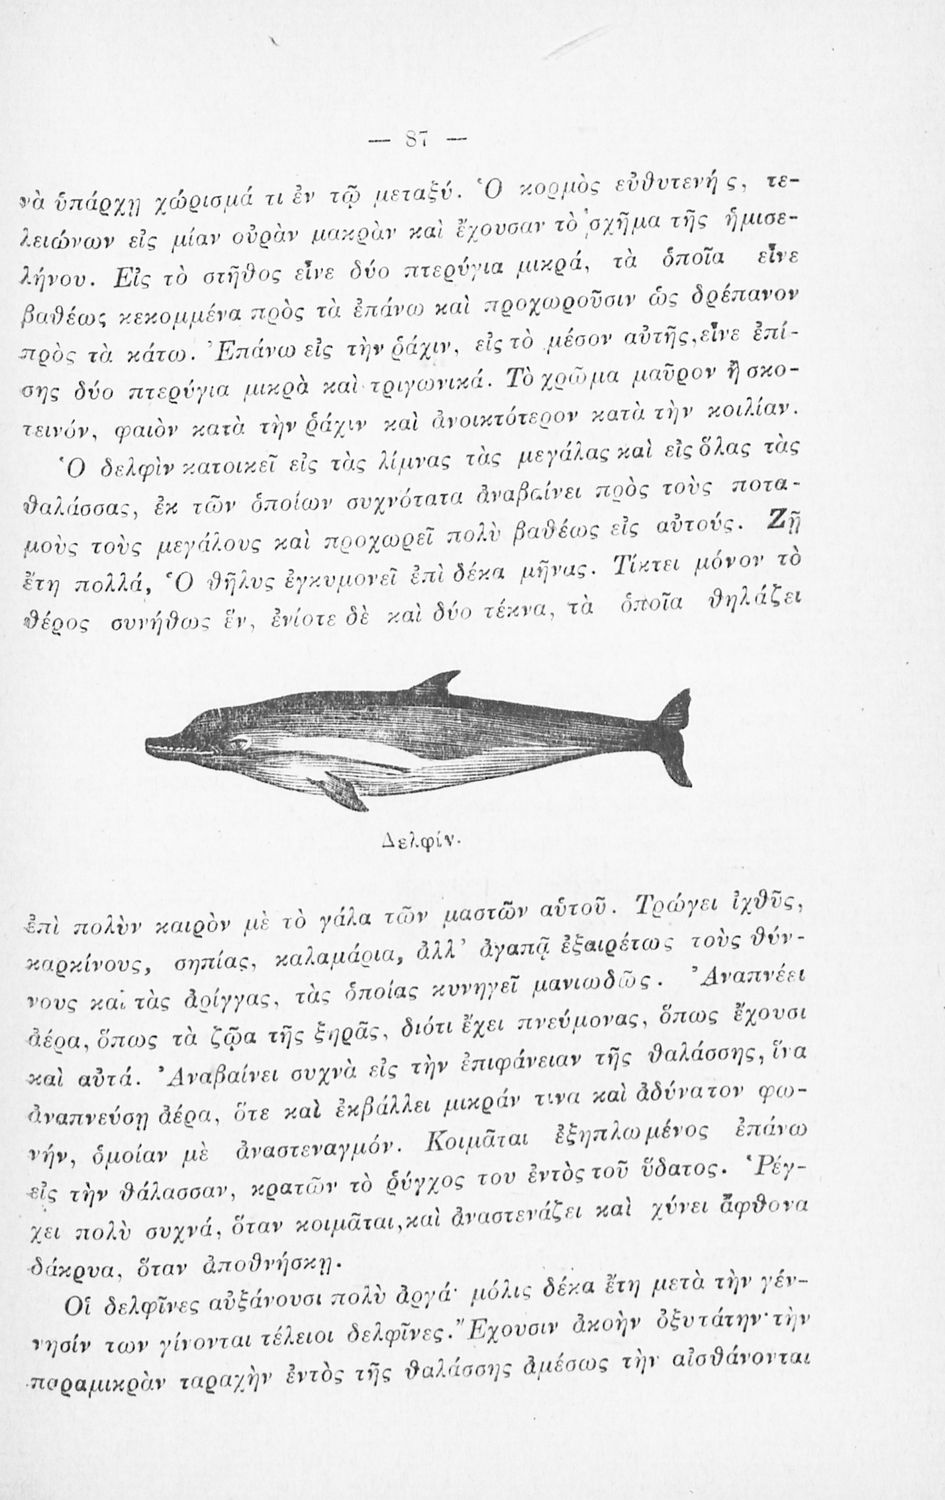 — 87 —
νὰ ὑπάρχῃ χώρισμά τι ἐν τῷ μεταξύ. Ὁ κορμὸς εὐθυτενής, τε-
λειώνων εἰς μίαν οὐρὰν μακρὰν καὶ ἔχουσαν τὸ σχῆμα τῆς ἡμισε-
λήνου. Εἰς τὸ στῆθος εἶνε δύο πτερύγια μικρά, τὰ ὁποῖα εἶνε
βαθέως κεκομμένα πρὸς τὰ ἐπάνω καὶ προχωροῦσιν ὡς δρέπανον
πρὸς τὰ κάτω. Ἐπάνω εἰς τὴν ῥάχιν, εἰς τὸ μέσον αὐτῆς, εἶνε ἐπί-
σης δύο πτερύγια μικρὰ καὶ τριγωνικά. Τὸ χρῶμα μαῦρον ἢ σκο-
τεινόν, φαιὸν κατὰ τὴν ῥάχιν καὶ ἀνοικτότερον κατὰ τὴν κοιλίαν.
Ὁ δελφὶν κατοικεῖ εἰς τὰς λίμνας τὰς μεγάλας καὶ εἰς ὅλας τὰς
θαλάσσας, ἐκ τῶν ὁποίων συχνότατα ἀναβαίνει πρὸς τοὺς ποτα-
μοὺς τοὺς μεγάλους καὶ προχωρεῖ πολὺ βαθέως εἰς αὐτούς. Ζῇ
ἔτη πολλά, Ὁ θῆλυς ἐγκυμονεῖ ἐπὶ δέκα μῆνας. Τίκτει μόνον τὸ
θέρος συνήθως ἕν, ἐνίοτε δὲ καὶ δύο τέκνα, τὰ ὁποῖα θηλάζει
Δελφίν.
ἐπὶ πολὺν καιρὸν μὲ τὸ γάλα τῶν μαστῶν αὑτοῦ. Τρώγει ἰχθῦς,
καρκίνους, σηπίας, καλαμάρια, ἀλλ' ἀγαπᾷ ἐξαιρέτως τοὺς θύν-
νους καὶ τὰς ἀρίγγας, τὰς ὁποίας κυνηγεῖ μανιωδῶς. Ἀναπνέει
ἀέρα, ὅπως τὰ ζῷα τῆς ξηρᾶς, διότι ἔχει πνεύμονας, ὅπως ἔχουσι
καὶ αὐτά. Ἀναβαίνει συχνὰ εἰς τὴν ἐπιφάνειαν τῆς θαλάσσης, ἵνα
ἀναπνεύσῃ ἀέρα, ὅτε καὶ ἐκβάλλει μικράν τινα καὶ ἀδύνατον φω-
νήν, ὁμοίαν μὲ ἀναστεναγμόν. Κοιμᾶται ἐξηπλωμένος ἐπάνω
εἰς τὴν θάλασσαν, κρατῶν τὸ ῥύγχος του ἐντὸς τοῦ ὕδατος. Ῥέγ-
χει πολὺ συχνά, ὅταν κοιμᾶται, καὶ ἀναστενάζει καὶ χύνει ἄφθονα
δάκρυα, ὅταν ἀποθνήσκῃ.
Οἱ δελφῖνες αὐξάνουσι πολὺ ἀργά· μόλις δέκα ἔτη μετὰ τὴν γέν-
νησίν των γίνονται τέλειοι δελφῖνες. Ἔχουσιν ἀκοὴν ὀξυτάτην· τὴν
παραμικρὰν ταραχὴν ἐντὸς τῆς θαλάσσης ἀμέσως τὴν αἰσθάνονται